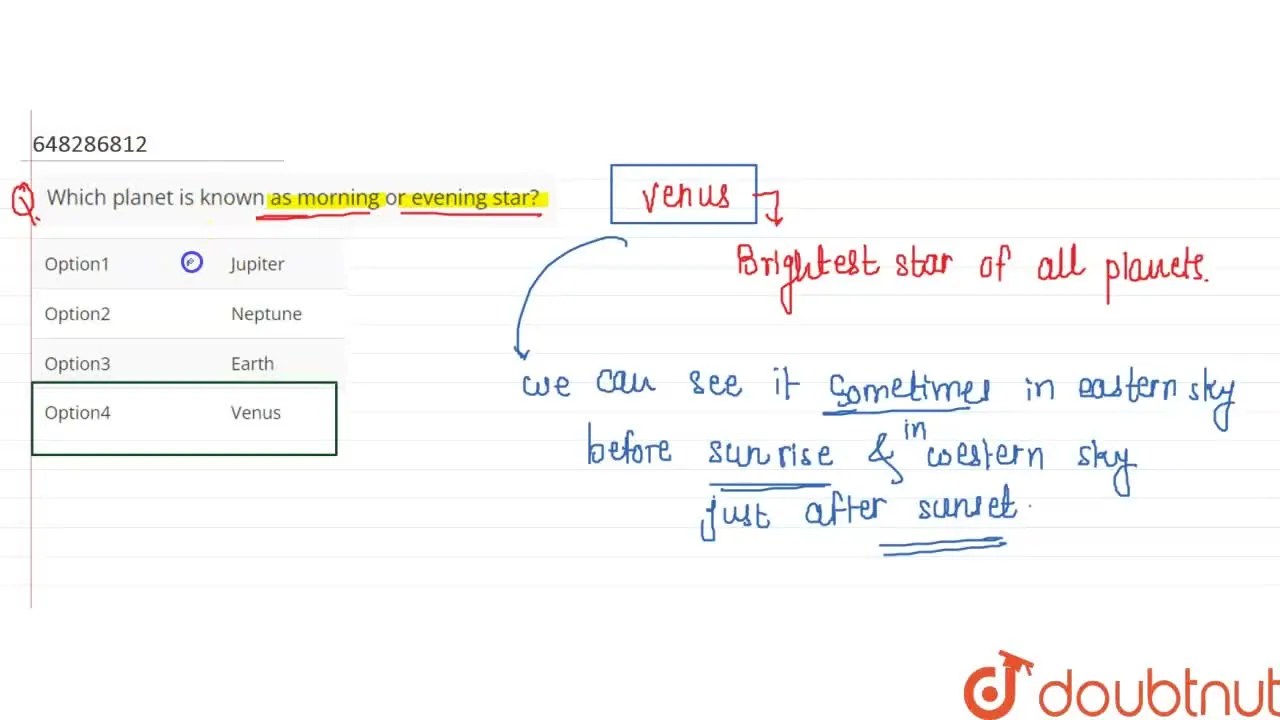 648286812
Q. Which planet is known as morning or evening star?
Option1 Jupiter
Option2 Neptune
Option3 Earth
Option4 Venus
Venus
Brightest star of all planets.
we can see it sometimes in eastern sky
before sunrise & in western sky
just after sunset.
doubtnut